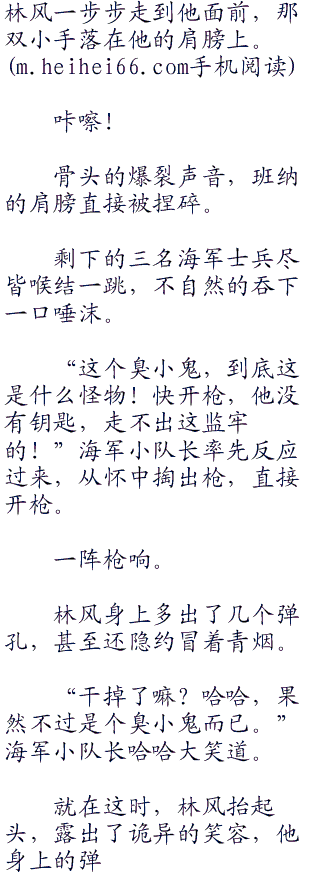 林风一步步走到他面前，那
双小手落在他的肩膀上。
(m.heihei66.com手机阅读)
咔嚓！
骨头的爆裂声音，班纳
的肩膀直接被捏碎。
剩下的三名海军士兵尽
皆喉结一跳，不自然的吞下
一口唾沫。
“这个臭小鬼，到底这
是什么怪物！快开枪，他没
有钥匙，走不出这监牢
的！”海军小队长率先反应
过来，从怀中掏出枪，直接
开枪。
一阵枪响。
林风身上多出了几个弹
孔，甚至还隐约冒着青烟。
“干掉了嘛？哈哈，果
然不过是个臭小鬼而已。”
海军小队长哈哈大笑道。
就在这时，林风抬起
头，露出了诡异的笑容，他
身上的弹